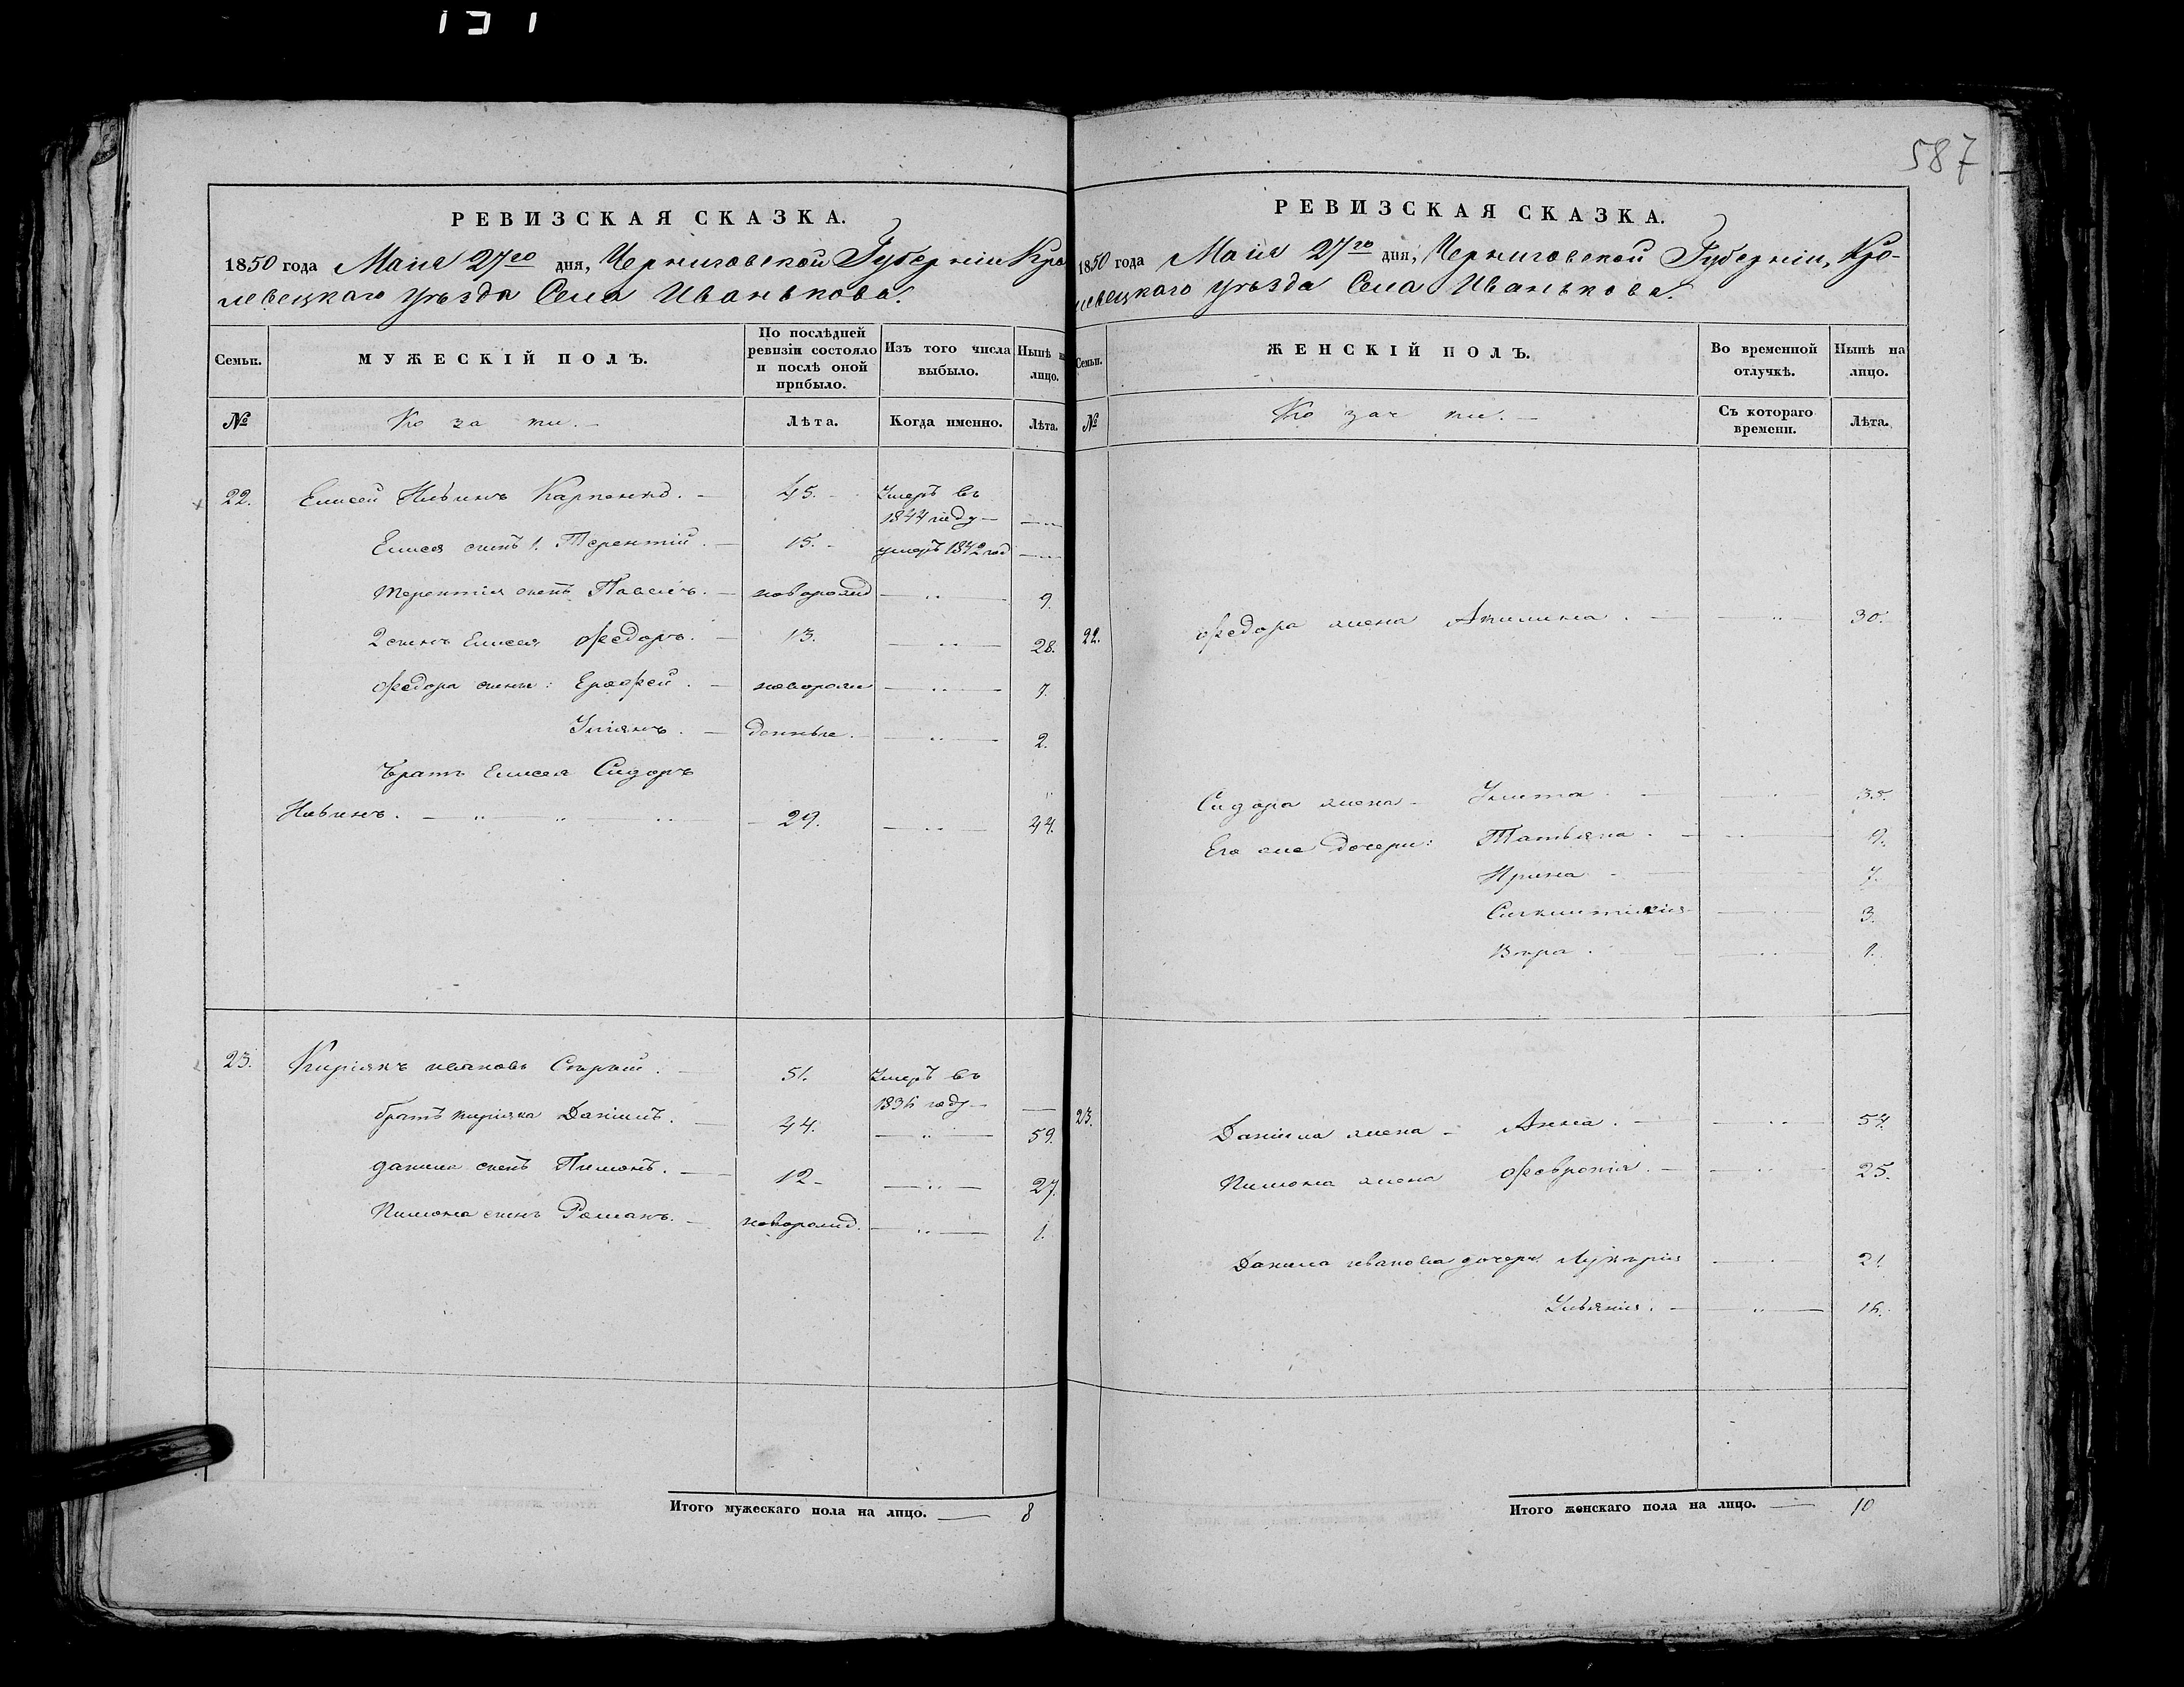 131
587
РЕВИЗСКАЯ СКАЗКА.
1850 года Маія 27го дня, Черниговской Губерніи Кро
левецкаго уѣзда Села Иванькова.
Семьи.
МУЖЕСКІЙ ПОЛЪ.
По послѣдней ревизіи состояло и послѣ оной прибыло.
Изъ того числа выбыло.
Нынѣ на лицо.
№
Козаки.
Лѣта.
Когда именно.
Лѣта.
22. Елисей Ильинъ Карпенко. 45. Умеръ въ
1844 году —
Елисея сынъ 1. Терентій. 15. умеръ 1842 год —
Терентія сынъ Павелъ. новорожд 9.
2 сынъ Елисея Федоръ. 13. 28.
Федора сыны: Ерофей. новорож 7.
Уліянъ. денные. 2.
Братъ Елисея Сидоръ
Ильинъ. 29. 44.
23. Киріякъ Ивановъ Старый. 51. Умеръ въ
1836 году —
братъ Киріяка Даніилъ. 44. 59.
данила сынъ Пимонъ. 12 27.
Пимона сынъ Романъ. новорожд. 1.
Итого мужескаго пола на лицо. — 8
РЕВИЗСКАЯ СКАЗКА.
1850 года Маія 27го дня, Черниговской Губерніи, Кро-
левецкаго уѣзда Села Иванькова.
Семьи.
ЖЕНСКІЙ ПОЛЪ.
Во временной отлучкѣ.
Нынѣ на лицо.
№
Козачки.
Съ котораго времени.
Лѣта.
22. Федора жена Акилина. 30.
Сидора жена Улита. 35.
Его же дочери: Татьяна. 9.
Ирина 7.
3.
Вѣра. 1.
23. Даніила жена Анна. 54.
Пимона жена Февронія. 25.
Данила Иванова дочери Лукерія 21.
Ульянія. 16.
Итого женскаго пола на лицо. — 10